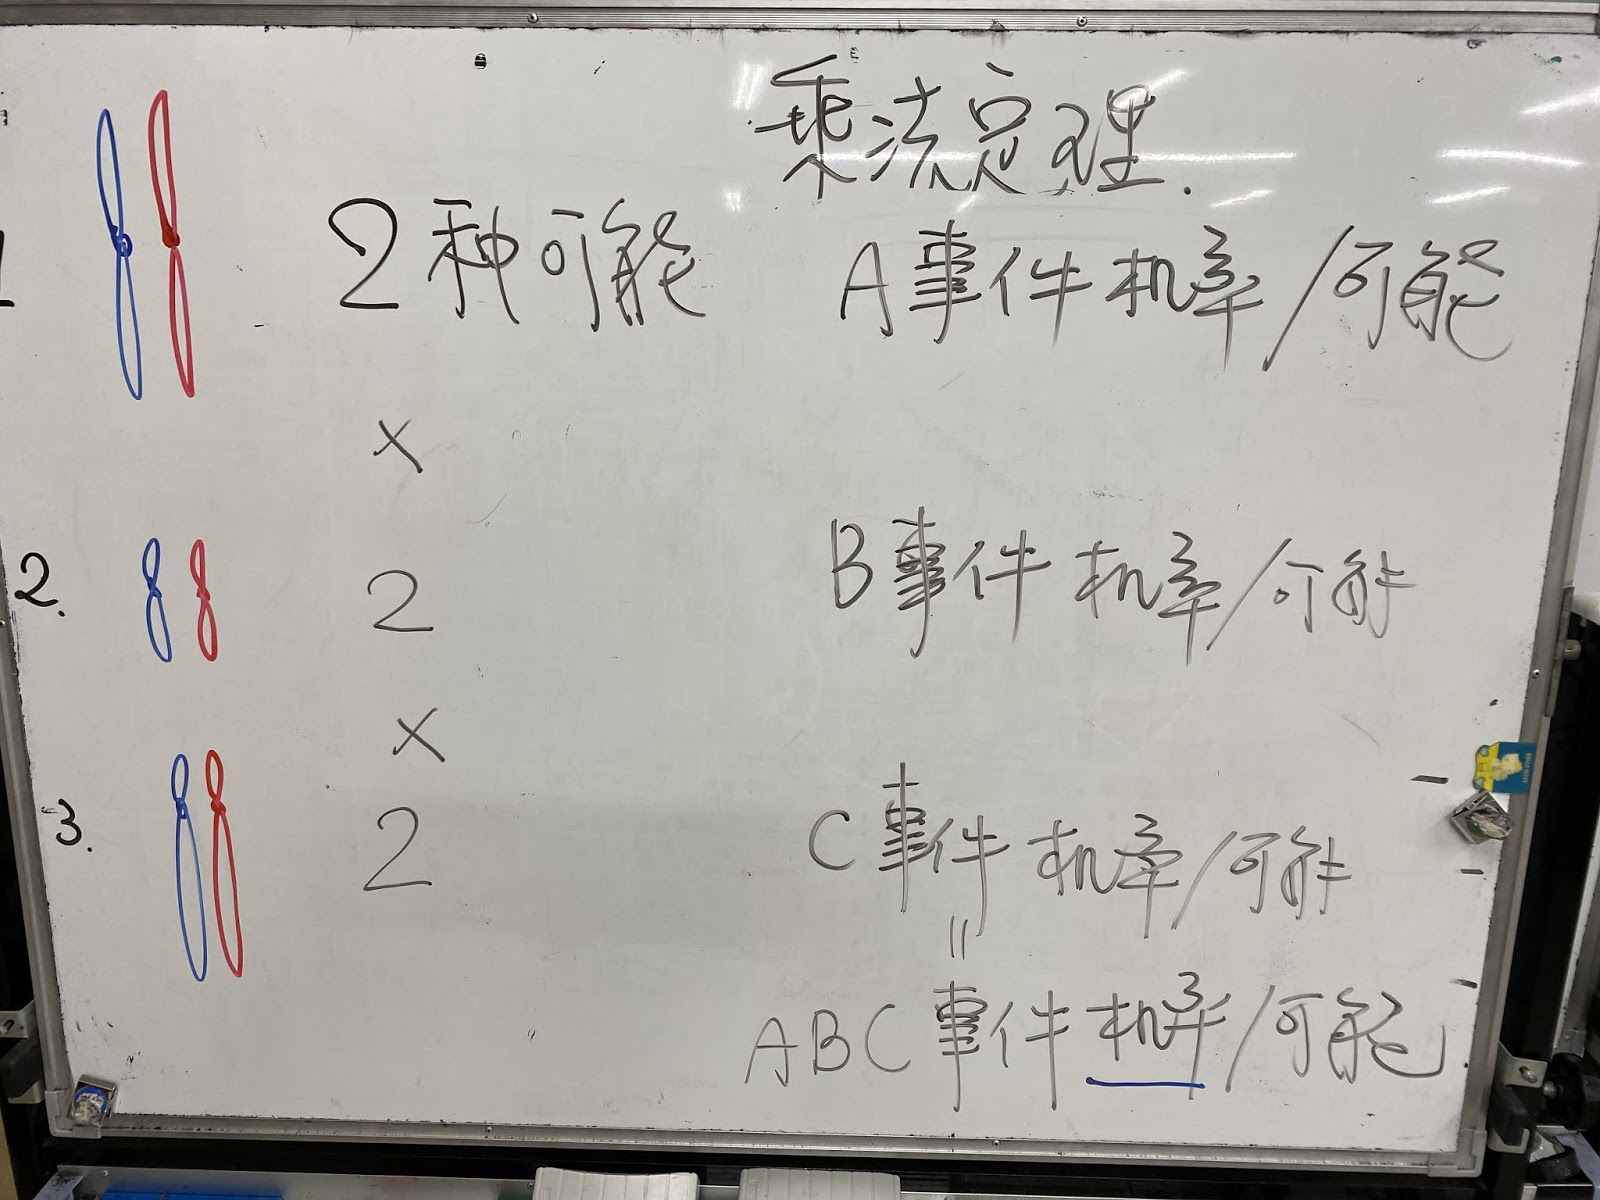 乘法定理.
1
2种可能
A事件机率/可能
×
2.
2
B事件机率/可能
×
3.
2
C事件机率/可能
=
ABC事件机率/可能